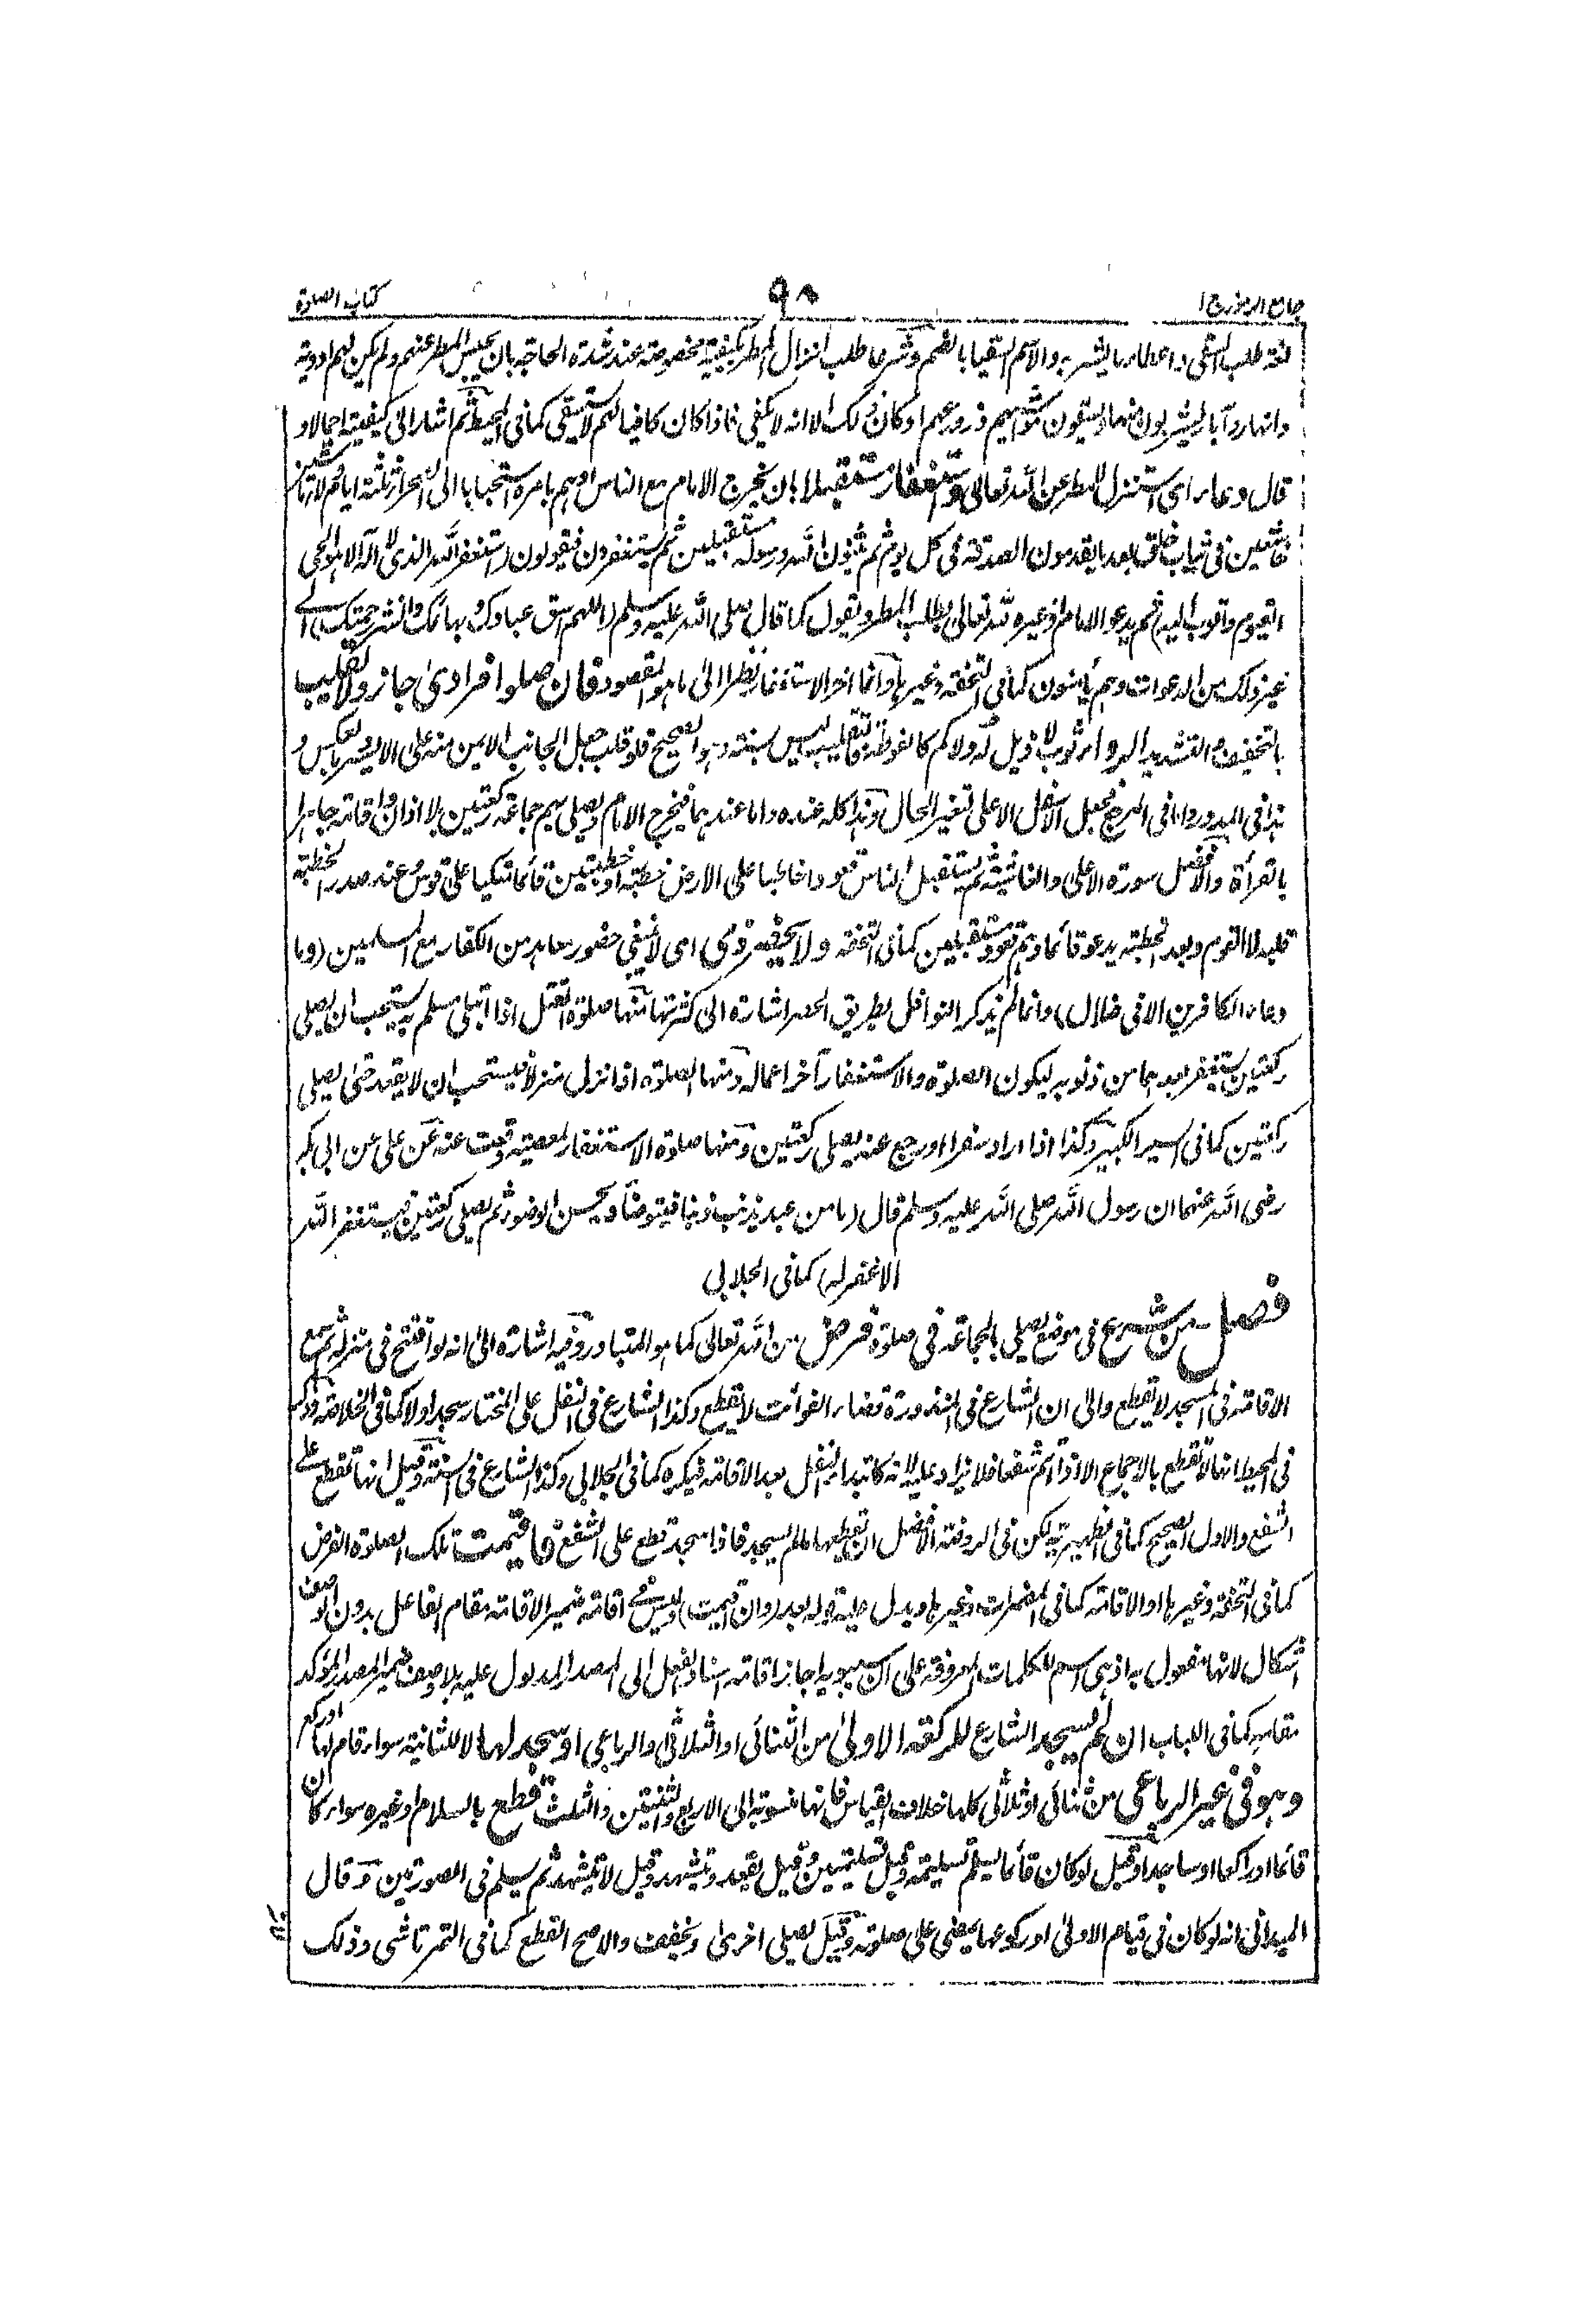 جامع الرموز ج ١ ٩٨ كتاب الصلاة
لغة طلب السقي واعطاء ما يشربه والاسم السقيا بالضم وشرعا طلب انزال المطر بكيفية مخصوصة عند شدة الحاجة بان يحبس المطر عنهم ولم يكن لهم اودية
وانهار وآبار يشربون منها ويسقون مواشيهم وزروعهم او كان ذلك الا انه لا يكفي فاذا كان كافيا لهم لا يستسقى كما في المحيط ثم اشار الى كيفيته اجمالا و
قال دعاء اى استنزال المطر عن الله تعالى واستغفار مستقبلا بان يخرج الامام مع الناس او هم بامره استحبابا الى الصحراء ثلثة ايام
خاشعين في ثياب خلق بعد ما يقدمون الصدقة في كل يوم ثم يثنون الله ورسوله مستقبلين ثم يستغفرون فيقولون (استغفر الله الذى لا اله الا هو الحي
القيوم واتوب اليه) ثم يدعو الامام وغيره لله تعالى بطلب المطر ويقول كما قال صلى الله عليه وسلم (اللهم اسق عبادك وبهائمك وانشر رحمتك) الى
غير ذلك من الدعوات وهم يأمنون كما في التحفة وغيرها وانما اخر الاستغفار نظرا الى ما هو المقصود فان صلوا فرادى جاز ولا تقليب
بالتخفيف والتشديد الرداء ثوب لا ذيل له ولا كم كالفوطة فالتقليب ليس بسنة وهو الصحيح فلو قلب جعل الجانب الايمن منه على الايسر وبالعكس و
هذا في المدور واما في المربع فيجعل الاسفل الاعلى لتغير الحال وهذا كله عنده واما عندهما فيخرج الامام ويصلي بهم جماعة ركعتين بلا اذان واقامة جاهرا
بالقرأة والافضل سورة الاعلى والغاشية ثم يستقبل الناس قعودا خاطبا على الارض خطبة او خطبتين قائما متكيا على قوس وعند صدر الخطبة
قلبه لا القوم وبعد الخطبة يدعو قائما وهم قعود مستقبلين كما في التحفة ولا يحضره ذمى اى لا ينبغي حضور معاهد من الكفار مع المسلمين (وما
دعاء الكافرين الا في ضلال) وانما لم يذكر النوافل بطريق الحصر اشارة الى كثرتها منها صلوة القتل اذا ابتلى مسلم به يستحب ان يصلى
ركعتين يستغفر بعدهما من ذنوبه ليكون الصلوة والاستغفار آخر اعماله ومنها الصلوة اذا نزل منزلا فيستحب ان لا يقعد حتى يصلى
ركعتين كما في السير الكبير وكذا اذا اراد سفرا او رجع عنه يصلى ركعتين ومنها صلوة الاستغفار لمعصية وقعت عنه عن على عن ابى بكر
رضى الله عنهما ان رسول الله صلى الله عليه وسلم قال (ما من عبد يذنب ذنبا فيتوضأ ويحسن الوضوء ثم يصلى ركعتين فيستغفر الله
الا غفر له) كما في الجلابي
فصل من شرع في موضع يصلى بالجماعة في صلوة فرض من الله تعالى كما هو المتبادر وفيه اشارة الى انه لو افتتح في منزله ثم سمع
الاقامة في المسجد لا يقطع والى ان الشارع في المنذورة وقضاء الفوائت لا يقطع وكذا الشارع في النفل على المختار سجد اولا كما في الخلاصة وذكر
في المحيط انها لا تقطع بالاجماع الا اذا اتم شفعا فلا يزاد عليه لانه كابتداء النفل بعد الاقامة فيكره كما في الجلابي وكذا الشارع في السنة وقيل انها تقطع على
الشفع والاول الصحيح كما في الظهيرية لكن في الروضة الافضل ان تقطيعها ما لم يسجد فاذا سجد قطع على الشفع فاقيمت تلك الصلوة الفرض
كما في التحفة وغيرها او الاقامة كما في المضمرات وغيرها ويدل عليه قوله بعد (وان اقيمت) وليس في اقامة ضمير الاقامة مقام الفاعل بدون الوصف
اشكال لانها مفعول به اذ هى اسم للكلمات المعروفة على ان سيبويه اجاز اقامة اسناد الفعل الى المصدر المدلول عليه بلا وصف ضمير المصدر المؤكد
مقامه كما في اللباب ان لم يسجد الشارع للركعة الاولى من الثنائى او الثلاثى والرباعى او سجد لها لا للثانية سواء قام لها او ركع
وهو في غير الرباعى من ثنائى او ثلاثى كلها خلاف القياس فانها منسوبة الى الاربع والثنتين والثلث قطع بالسلام او غيره سواء كان
قائما او راكعا او ساجدا وقيل لو كان قائما يسلم تسليمة وقيل تسليمتين وقيل يقعد ويتشهد وقيل لا يتشهد ثم يسلم في الصورتين وقال
الميدانى انه لو كان في قيام الاولى او ركوعها يمضى على صلوته وقيل يصلى اخرى ويخفف والاصح القطع كما في التمرتاشى وذلك